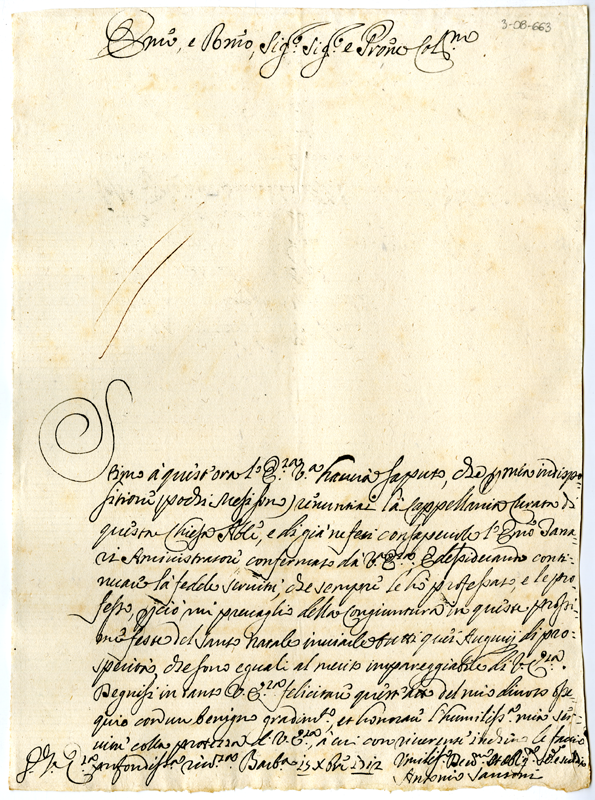 3-08-663
Em̃o, e Rm̃o, Sig.r Sig.r e Prõne Col.mo
Stimo à quest'ora l'E.za V.a haverà saputo, che p mia indispo=
sitione pochi mesi sono renuntiai la Cappellania Curata di
questa Chiesa Abb.e, e di già ne feci consapevole l'Em̃o Tana=
ri Aministratore confermato da V.E.za. E desiderando conti=
nuare la fedele servitù, che sempre le hò protestato e le pro=
festo, p ciò mi prevaglio della Congiuntura in queste prossi=
me feste del Santo Natale inviarle tutti quei Augurij di pro=
sperità, che sono eguali al merito impareggiabile di V.E.za.
Degnisi in tanto V.E.za felicitare quest'atto del mio divoto osse=
quio con un benigno gradim.to, et honorare l'humiliss.a mia ser=
vitù colla protezza d. V.E.za, à cui con riverenti inchini le faccio
profondissima river.za Barb.a 15 Xbre 1712
Humiliss.o Dev.mo et Obblig.mo
Antonio Sansoni